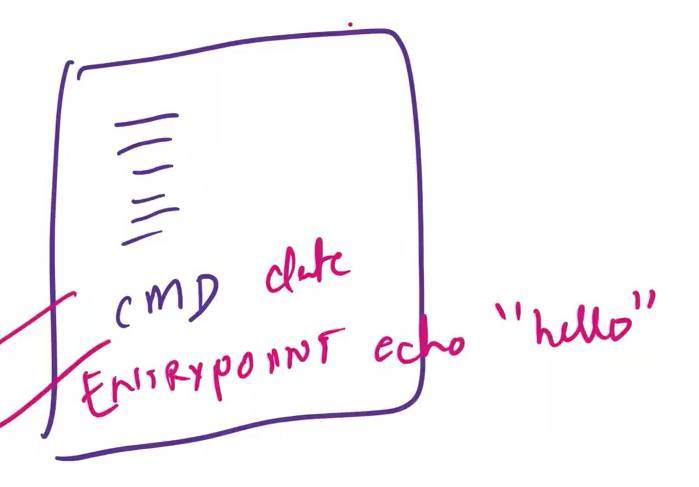 CMD date
ENTRYPOINT echo "hello"